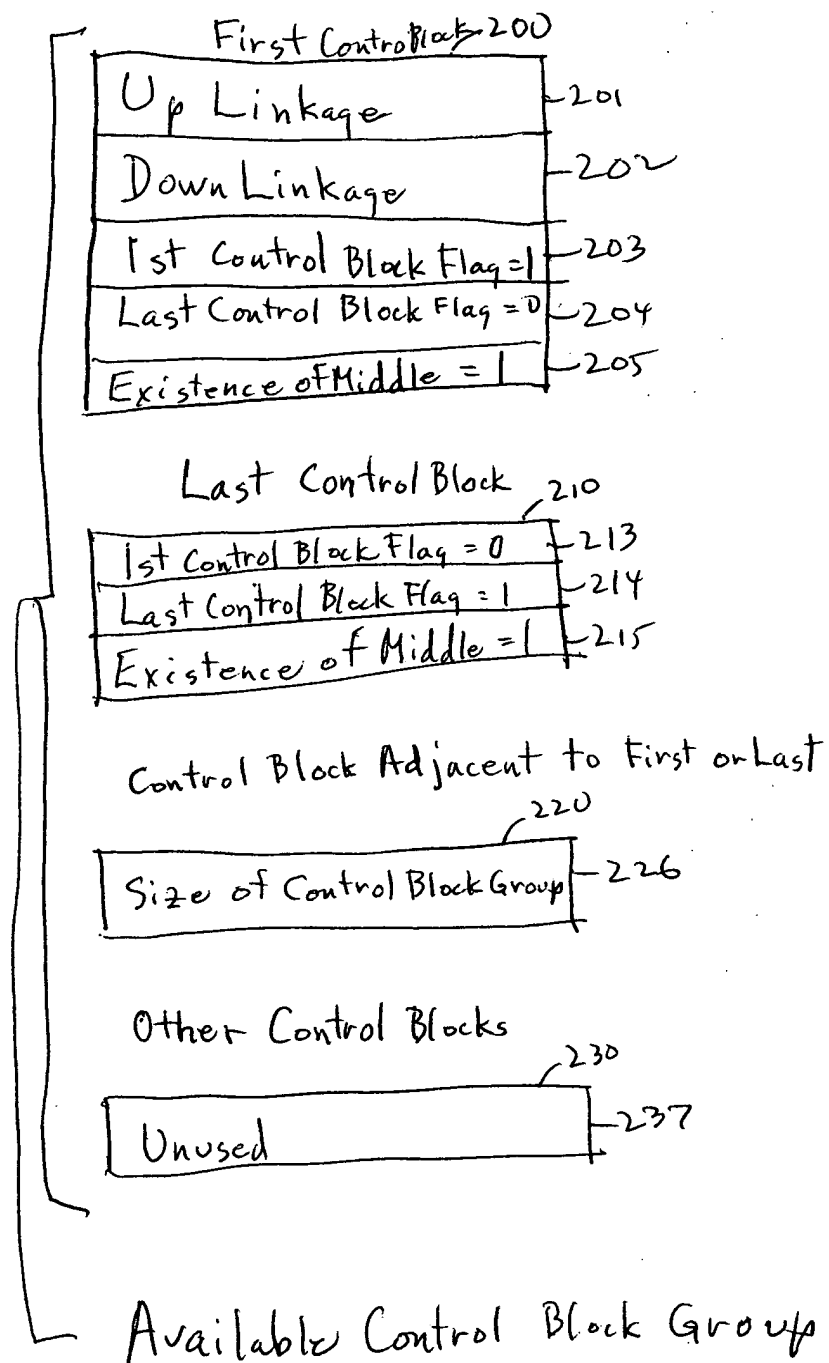 First Control Block 200
Up Linkage 201
Down Linkage 202
1st Control Block Flag = 1 203
Last Control Block Flag = 0 204
Existence of Middle = 1 205
Last Control Block
210
1st Control Block Flag = 0 213
Last Control Block Flag = 1 214
Existence of Middle = 1 215
Control Block Adjacent to First or Last
220
Size of Control Block Group 226
Other Control Blocks
230
Unused 237
Available Control Block Group